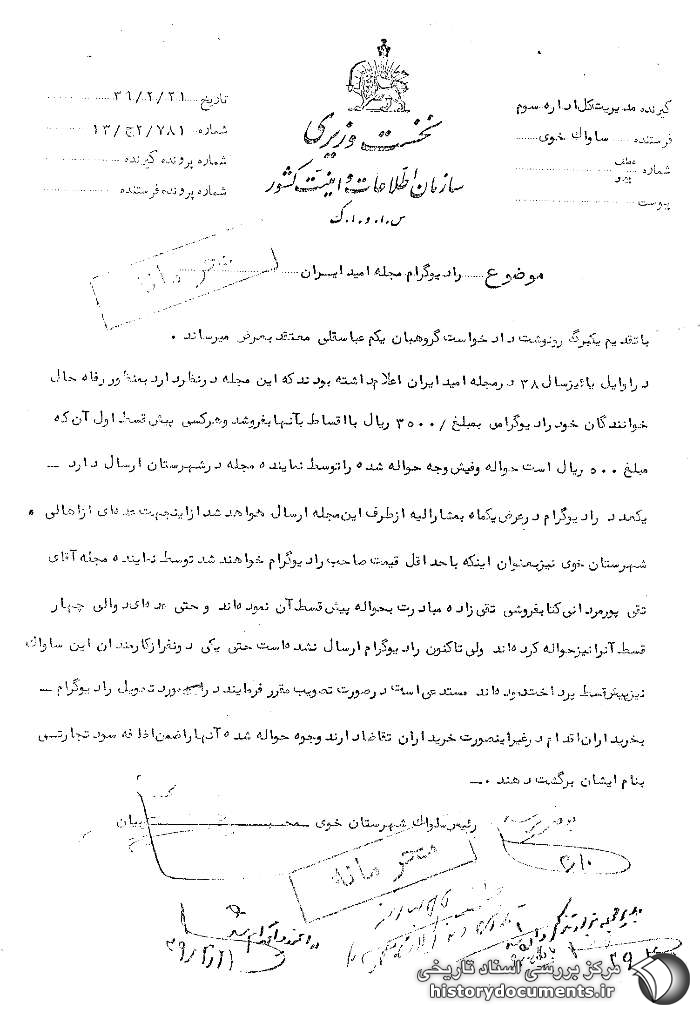 نخست وزیری
سازمان اطلاعات و امنیت کشور
س.ا.و.ا.ک
گیرنده مدیریت کل اداره سوم
فرستنده ساواک خوی
شماره عطف پیرو
پیوست
تاریخ ۳۹/۲/۲۱
شماره ۱۳/ج۲/۷۸۱
شماره پرونده گیرنده
شماره پرونده فرستنده
موضوع رادیوگرام مجله امید ایران
محرمانه
با تقدیم یکبرگ رونوشت دادخواست گروهبان یکم عباسقلی معتقد بعرض میرساند .
در اوایل پائیز سال ۳۸ در مجله امید ایران اعلام داشته بودند که این مجله در نظر دارد بمنظور رفاه حال
خوانندگان خود رادیوگرامی بمبلغ /۳۵۰۰ ریال با اقساط بآنها بفروشد و هرکسی پیش قسط اول آن که
مبلغ ۵۰۰ ریال است حواله و فیش وجه حواله شده را توسط نماینده مجله در شهرستان ارسال دارد -
یکعدد رادیوگرام در عرض یکماه بمشارالیه از طرف این مجله ارسال خواهد شد از اینجهت عده‌ای از اهالی
شهرستان خوی نیز بعنوان اینکه با حداقل قیمت صاحب رادیوگرام خواهند شد توسط نماینده مجله آقای
تقی پورمردانی کتابفروشی تقی زاده مبادرت بحواله پیش قسط آن نموده‌اند و حتی عده‌ای دو الی چهار
قسط آنرا نیز حواله کرده‌اند ولی تاکنون رادیوگرام ارسال نشده است حتی یکی دو نفر از کارمندان این ساواک
نیز پیش قسط پرداخت نموده‌اند مستدعی است در صورت تصویب مقرر فرمایند در مورد تحویل رادیوگرام -
بخریداران اقدام در غیر اینصورت خریداران تقاضا دارند وجوه حواله شده آنها را ضمن اضافه سود تجارتی
بنام ایشان برگشت دهند .-
رئیس ساواک شهرستان خوی
محرمانه
مرکز بررسی اسناد تاریخی
historydocuments.ir